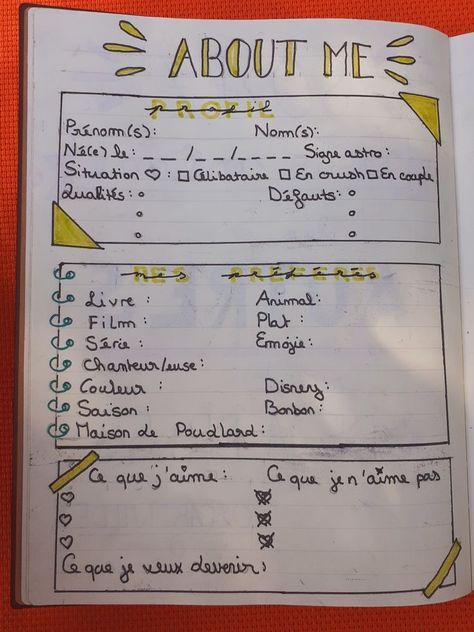 ABOUT ME
PROFIL
Prénom(s): Nom(s):
Né(e) le: _ _ /_ _/_ _ _ _ Signe astro:
Situation ♡: □ Célibataire □ En crush □ En couple
Qualités: Défauts:
MES PRÉFÉRÉS
Livre : Animal:
Film : Plat :
Série : Emojie:
Chanteur/euse:
Couleur : Disney:
Saison : Bonbon:
Maison de Poudlard:
Ce que j'aime: Ce que je n'aime pas
Ce que je veux devenir: